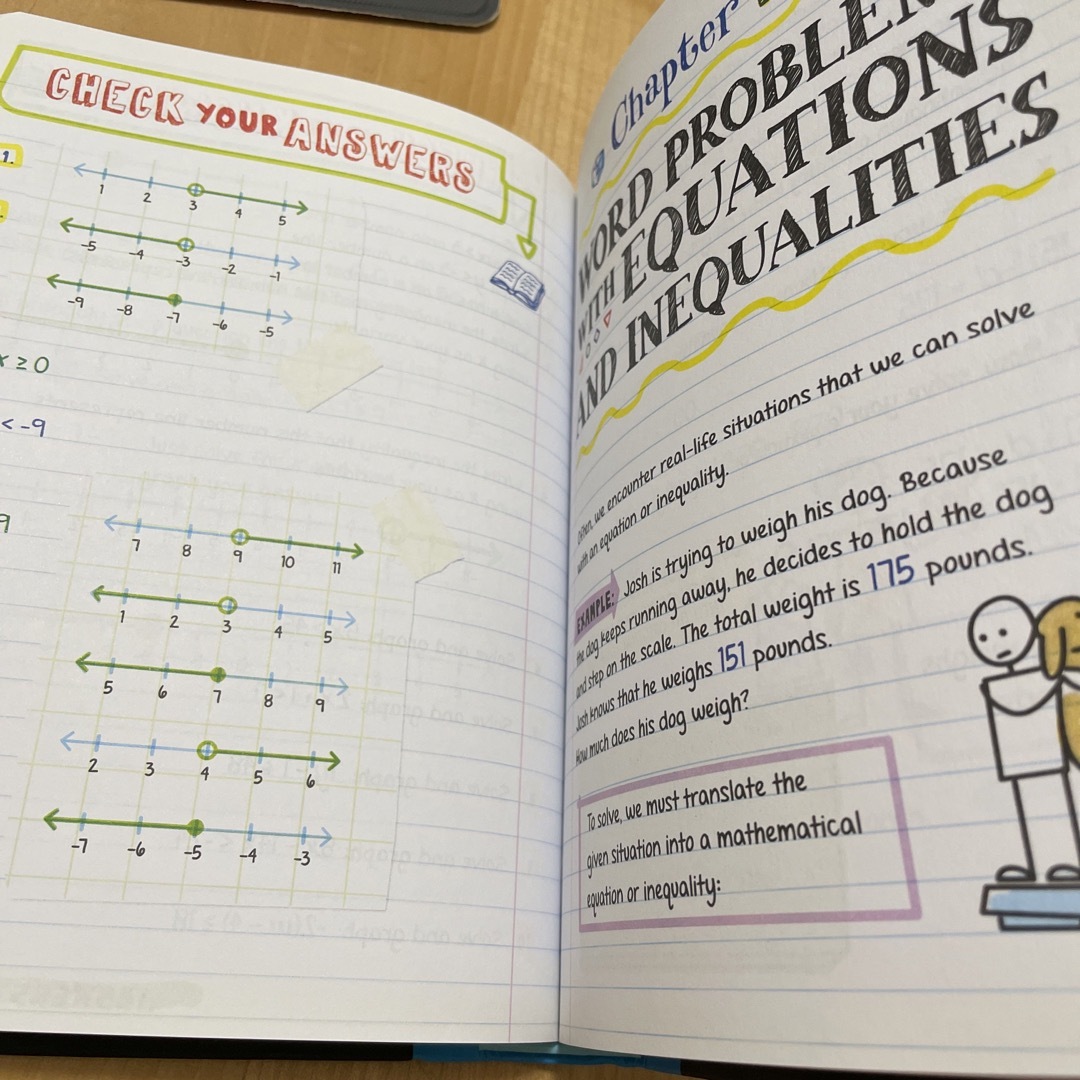 CHECK YOUR ANSWERS
1.
1 2 3 4 5
-5 -4 -3 -2 -1
-9 -8 -7 -6 -5
x ≥ 0
< -9
9
7 8 9 10 11
1 2 3 4 5
5 6 7 8 9
2 3 4 5 6
-7 -6 -5 -4 -3
Chapter
WORD PROBLEMS
WITH EQUATIONS
AND INEQUALITIES
Often, we encounter real-life situations that we can solve
with an equation or inequality.
EXAMPLE: Josh is trying to weigh his dog. Because
the dog keeps running away, he decides to hold the dog
and step on the scale. The total weight is 175 pounds.
Josh knows that he weighs 151 pounds.
How much does his dog weigh?
To solve, we must translate the
given situation into a mathematical
equation or inequality: